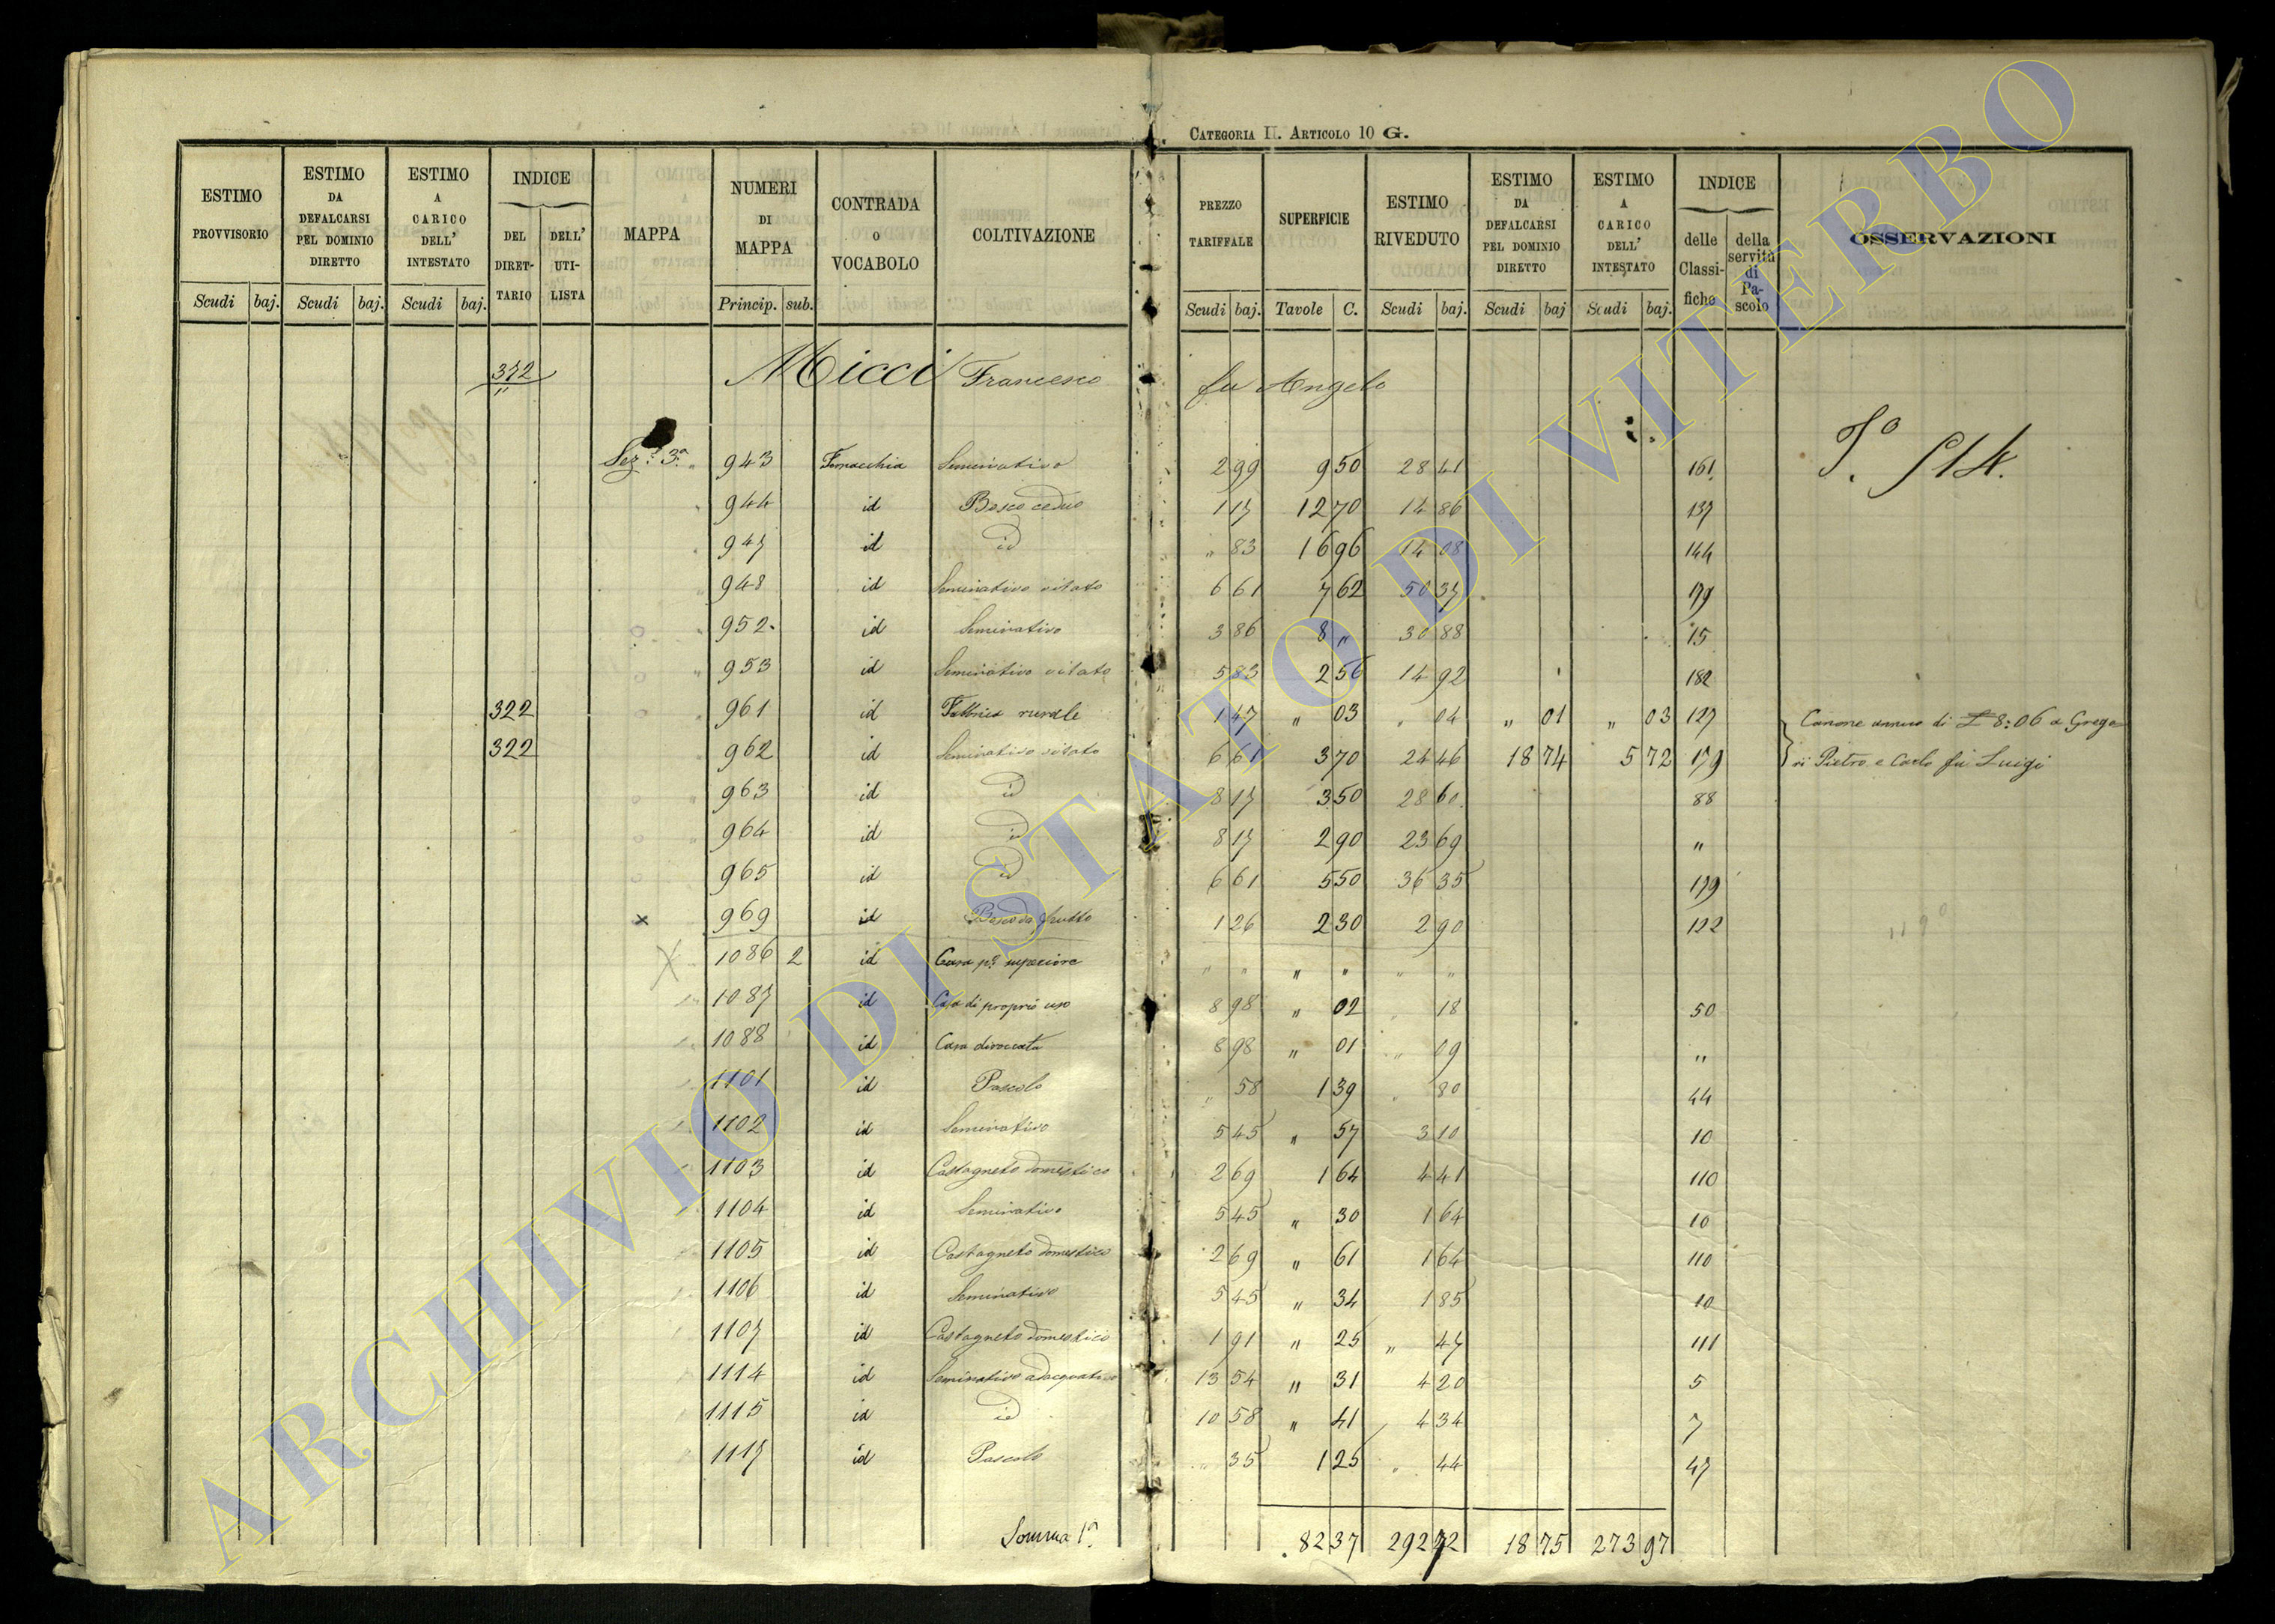 CATEGORIA II. ARTICOLO 10 G.
ESTIMO PROVVISORIO | ESTIMO DA DEFALCARSI PEL DOMINIO DIRETTO | ESTIMO A CARICO DELL' INTESTATO | INDICE DEL DIRET-TARIO | DELL' UTI-LISTA | MAPPA | NUMERI DI MAPPA | CONTRADA O VOCABOLO | COLTIVAZIONE | PREZZO TARIFFALE | SUPERFICIE | ESTIMO RIVEDUTO | ESTIMO DA DEFALCARSI PEL DOMINIO DIRETTO | ESTIMO A CARICO DELL' INTESTATO | INDICE delle Classi-fiche | della servitù di Pa-scolo | OSSERVAZIONI
Scudi baj. | Scudi baj. | Scudi baj. | Princip. sub. | Scudi baj. | Tavole C. | Scudi baj. | Scudi baj | Scudi baj.
372 Micci Francesco fu Angelo
Sez: 3a " 943 Fornacchia Seminativo 2 99 9 50 28 41 161
944 id Bosco ceduo 1 17 12 70 14 86 137
947 id id " 83 16 96 14 08 144
948 id Seminativo vitato 6 61 7 62 50 37 179
952 id Seminativo 3 86 8 " 30 88 15
953 id Seminativo vitato 5 83 2 56 14 92 182
322 961 id Fabbrica rurale 1 47 " 03 " 04 " 01 " 03 127 Canone annuo di £ 8:06 a Grego
322 962 id Seminativo vitato 6 61 3 70 24 46 18 74 5 72 179 ri Pietro e Carlo fu Luigi
963 id id 8 17 3 50 28 60 88
964 id id 8 17 2 90 23 69 "
965 id id 6 61 5 50 36 35 179
x 969 id Bosco da frutto 1 26 2 30 2 90 122
X 1086 2 id Casa po superiore " " " " " "
1087 id Casa di proprio uso 8 98 " 02 " 18 50
1088 id Casa diroccata 8 98 " 01 " 09 "
1101 id Pascolo " 58 1 39 " 80 44
1102 id Seminativo 5 45 " 57 3 10 10
1103 id Castagneto domestico 2 69 1 64 4 41 110
1104 id Seminativo 5 45 " 30 1 64 10
1105 id Castagneto domestico 2 69 " 61 1 64 110
1106 id Seminativo 5 45 " 34 1 85 10
1107 id Castagneto domestico 1 91 " 25 " 47 111
1114 id Seminativo adacquativo 13 54 " 31 4 20 5
1115 id id 10 58 " 41 4 34 7
1117 id Pascolo " 35 1 25 " 44 47
Somma 1a 82 37 292 72 18 75 273 97
ARCHIVIO DI STATO DI VITERBO